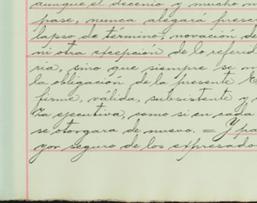 aunque el decenio, y mucho m
pase, nunca alegará presc
lapso de término, novación de
ni otra excepción de lo referid
ria, sino que siempre se
la obligación de la presente E
firme, válida, subsistente y
za ejecutiva, como si en cada
se otorgara de nuevo. = Y pa
yor seguro de los expresados